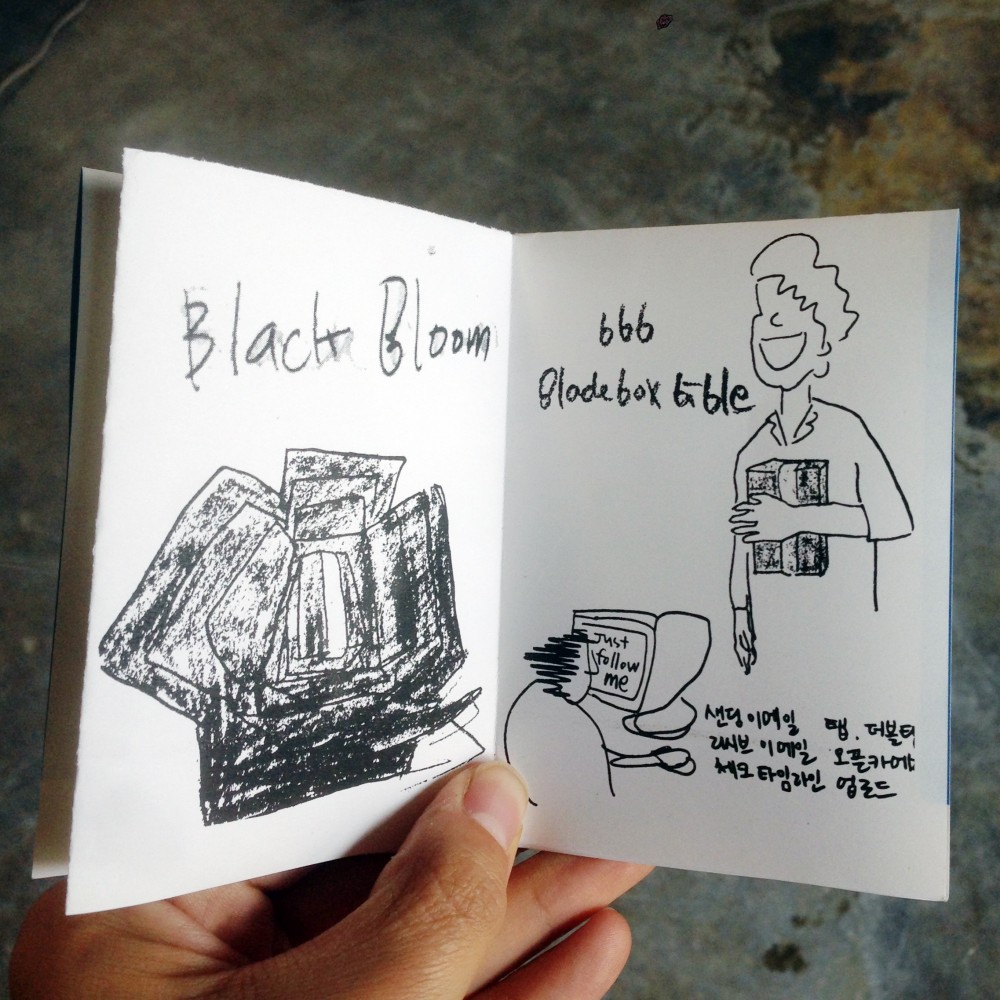 Black Bloom
666
Bladebox table
Just
follow
me
샌딩이메일 탭.더블터
리시브이메일 오픈카메
체크타임라인 업로드